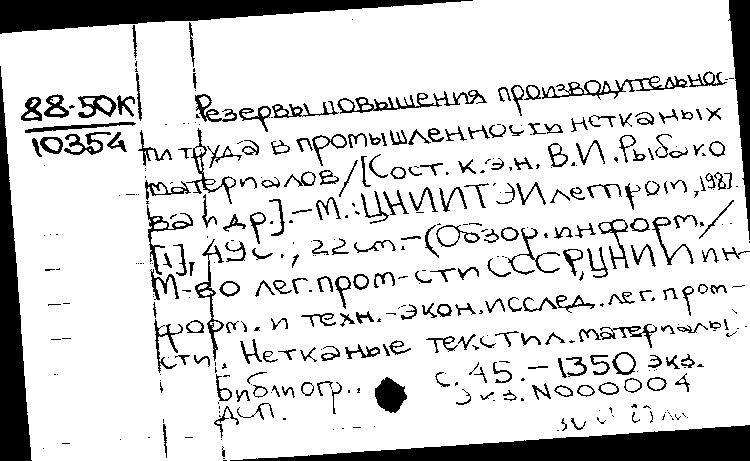 88-50К
10354
Резервы повышения производительнос-
ти труда в промышленности нетканых
материалов/[Сост. к.э.н. В.И. Рыбако
ва и др.].-М.:ЦНИИТЭИлегпром, 1987.
[1], 49с., 22см.-(Обзор.информ./
М-во лег.пром-сти СССР, ЦНИИ ин-
форм. и техн.-экон.исслед.лег.пром-
сти. Нетканые текстил.материалы).
Библиогр.: с. 45.-1350 экз.
ДСП. Экз.N000004